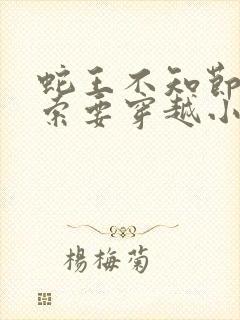 蛇王不知節
索要穿越小
楊梅菊